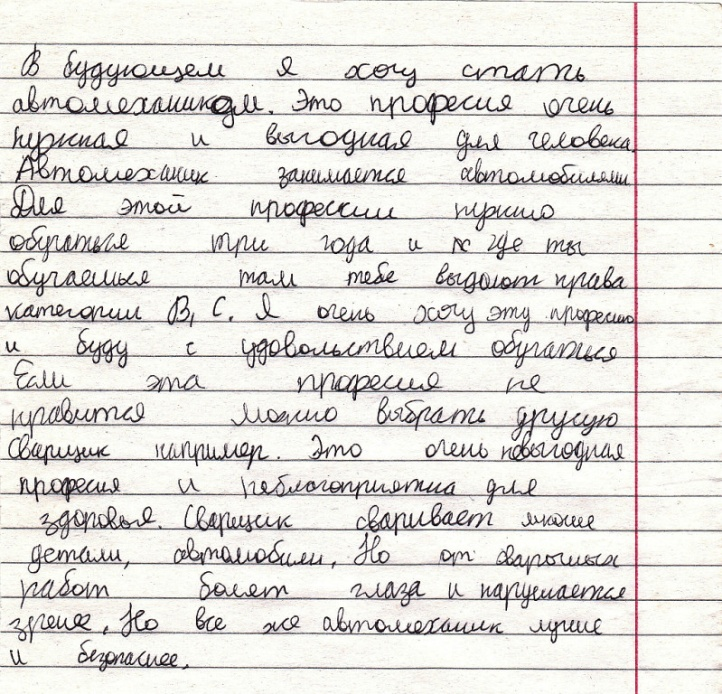 В будующем я хочу стать
автомехаником. Это професия очень
нужная и выгодная для человека.
Автомеханик занимается автомобилями
Для этой профессии нужно
обучаться три года и где ты
обучаешься там тебе выдают права
категории В, С. Я очень хочу эту професию
и буду с удовольствием обучаться
Если эта професия не
нравится можно выбрать другую
Сварщик например. Это очень невыгодная
професия и неблогоприятна для
здоровья. Сварщик сваривает
детали, автомобили, Но от сварочных
работ болят глаза и нарушается
зрение. Но все же автомеханик лучше
и безопаснее.